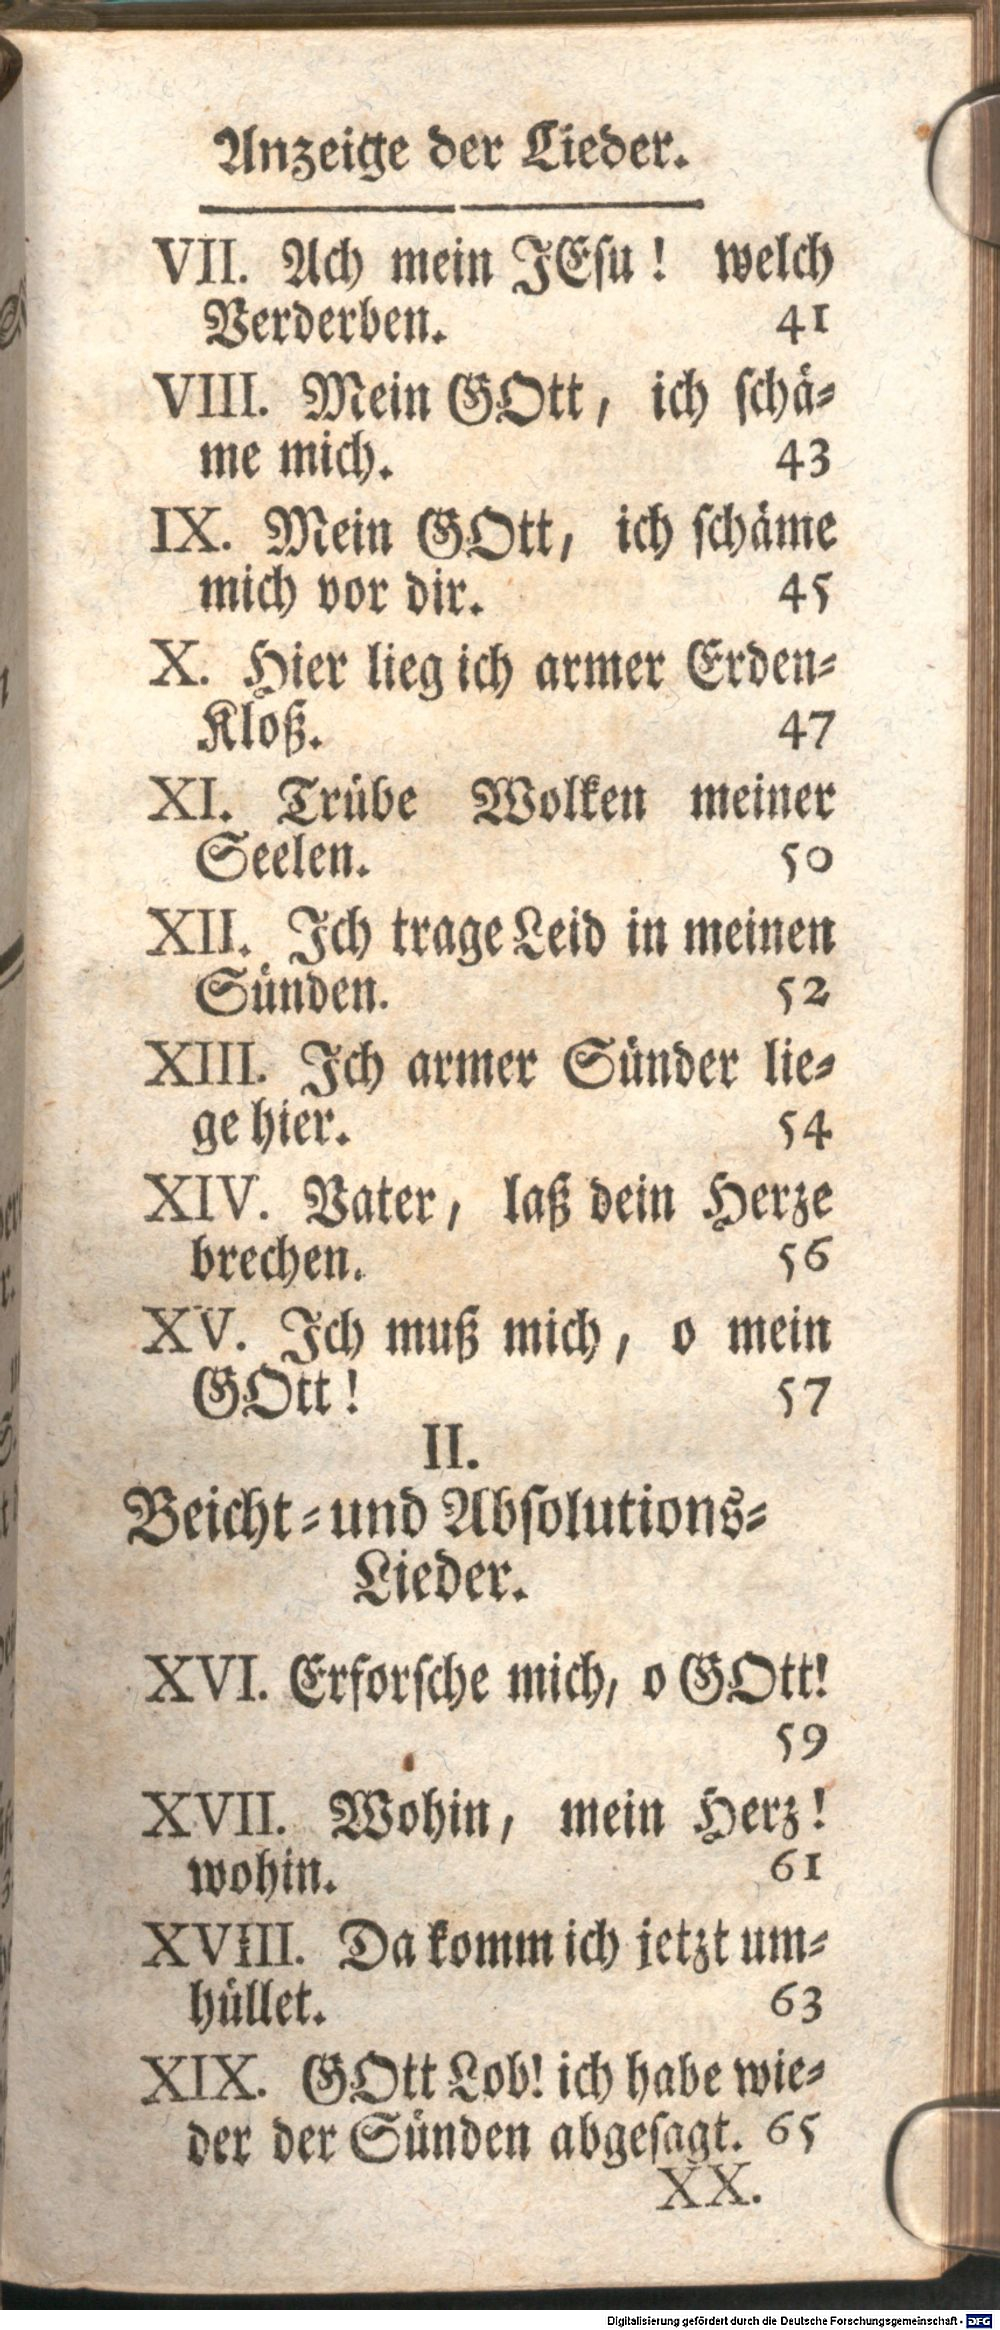 Anzeige der Lieder.
VII. Ach mein JEsu! welch
Verderben. 41
VIII. Mein GOtt, ich schä⸗
me mich. 43
IX. Mein GOtt, ich schäme
mich vor dir. 45
X. Hier lieg ich armer Erden⸗
Kloß. 47
XI. Trübe Wolken meiner
Seelen. 50
XII. Ich trage Leid in meinen
Sünden. 52
XIII. Ich armer Sünder lie⸗
ge hier. 54
XIV. Vater, laß dein Herze
brechen. 56
XV. Ich muß mich, o mein
GOtt! 57
II.
Beicht⸗und Absolutions⸗
Lieder.
XVI. Erforsche mich, o GOtt!
59
XVII. Wohin, mein Herz!
wohin. 61
XVIII. Da komm ich jetzt um⸗
hüllet. 63
XIX. GOtt Lob! ich habe wie⸗
der der Sünden abgesagt. 65
XX.
Digitalisierung gefördert durch die Deutsche Forschungsgemeinschaft - DFG